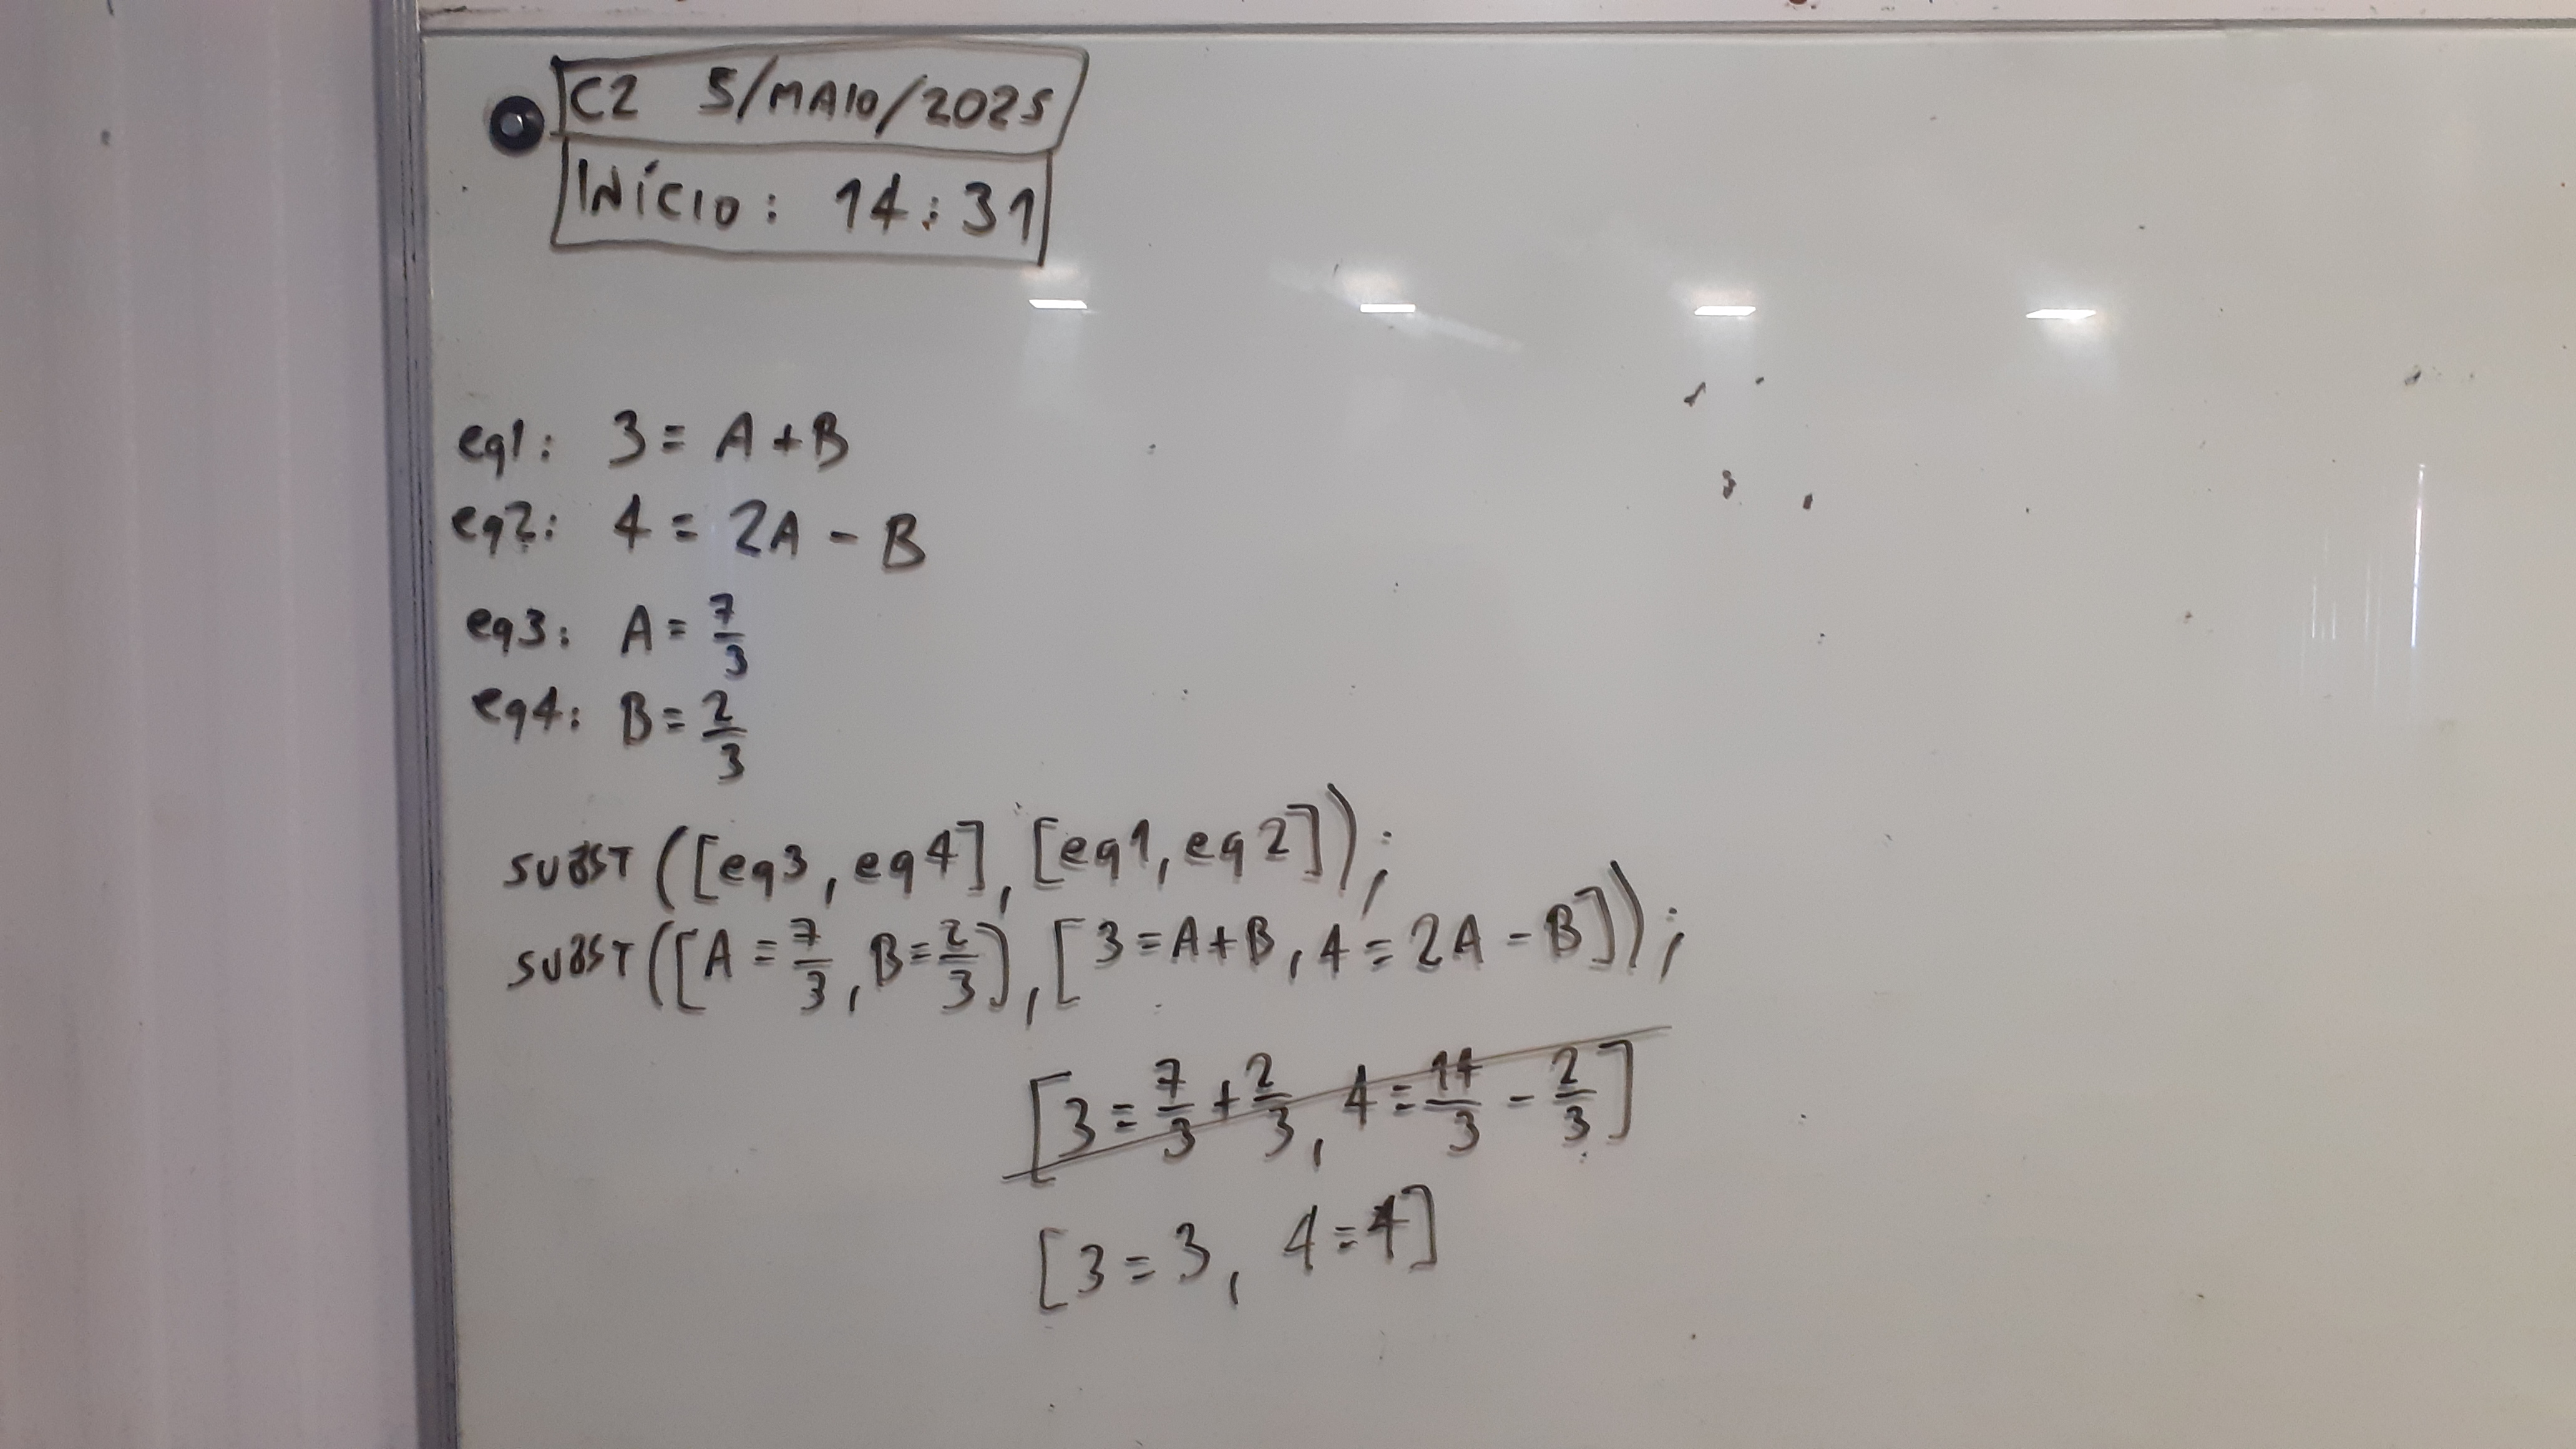 C2 5/MAIO/2025
INÍCIO: 14:31
eq1: 3 = A + B
eq2: 4 = 2A - B
eq3: A = 7/3
eq4: B = 2/3
SUBST([eq3, eq4], [eq1, eq2]);
SUBST([A = 7/3, B = 2/3], [3 = A + B, 4 = 2A - B]);
[3 = 7/3 + 2/3, 4 = 14/3 - 2/3]
[3 = 3, 4 = 4]